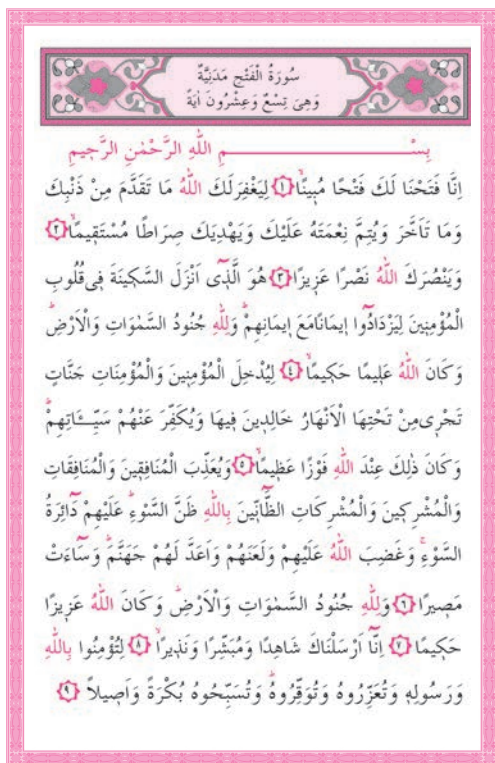 سُورَةُ الْفَتْحِ مَدَنِيَّةٌ
وَهِىَ تِسْعٌ وَعِشْرُونَ اٰيَةً
بِسْــــــــــــمِ اللّٰهِ الرَّحْمٰنِ الرَّحٖيمِ
اِنَّا فَتَحْنَا لَكَ فَتْحًا مُبٖينًاۙ ﴿١﴾ لِيَغْفِرَ لَكَ اللّٰهُ مَا تَقَدَّمَ مِنْ ذَنْبِكَ
وَمَا تَاَخَّرَ وَيُتِمَّ نِعْمَتَهُ عَلَيْكَ وَيَهْدِيَكَ صِرَاطًا مُسْتَقٖيمًاۙ ﴿٢﴾
وَيَنْصُرَكَ اللّٰهُ نَصْرًا عَزٖيزًا ﴿٣﴾ هُوَ الَّذٖٓى اَنْزَلَ السَّكٖينَةَ فٖى قُلُوبِ
الْمُؤْمِنٖينَ لِيَزْدَادُٓوا اٖيمَانًا مَعَ اٖيمَانِهِمْؕ وَلِلّٰهِ جُنُودُ السَّمٰوَاتِ وَالْاَرْضِؕ
وَكَانَ اللّٰهُ عَلٖيمًا حَكٖيمًاۙ ﴿٤﴾ لِيُدْخِلَ الْمُؤْمِنٖينَ وَالْمُؤْمِنَاتِ جَنَّاتٍ
تَجْرٖى مِنْ تَحْتِهَا الْاَنْهَارُ خَالِدٖينَ فٖيهَا وَيُكَفِّرَ عَنْهُمْ سَيِّـَٔاتِهِمْؕ
وَكَانَ ذٰلِكَ عِنْدَ اللّٰهِ فَوْزًا عَظٖيمًاۙ ﴿٥﴾ وَيُعَذِّبَ الْمُنَافِقٖينَ وَالْمُنَافِقَاتِ
وَالْمُشْرِكٖينَ وَالْمُشْرِكَاتِ الظَّٓانّٖينَ بِاللّٰهِ ظَنَّ السَّوْءِؕ عَلَيْهِمْ دَٓائِرَةُ
السَّوْءِۚ وَغَضِبَ اللّٰهُ عَلَيْهِمْ وَلَعَنَهُمْ وَاَعَدَّ لَهُمْ جَهَنَّمَؕ وَسَٓاءَتْ
مَصٖيرًا ﴿٦﴾ وَلِلّٰهِ جُنُودُ السَّمٰوَاتِ وَالْاَرْضِؕ وَكَانَ اللّٰهُ عَزٖيزًا
حَكٖيمًا ﴿٧﴾ اِنَّٓا اَرْسَلْنَاكَ شَاهِدًا وَمُبَشِّرًا وَنَذٖيرًاۙ ﴿٨﴾ لِتُؤْمِنُوا بِاللّٰهِ
وَرَسُولِهٖ وَتُعَزِّرُوهُ وَتُوَقِّرُوهُؕ وَتُسَبِّحُوهُ بُكْرَةً وَاَصٖيلاً ﴿٩﴾